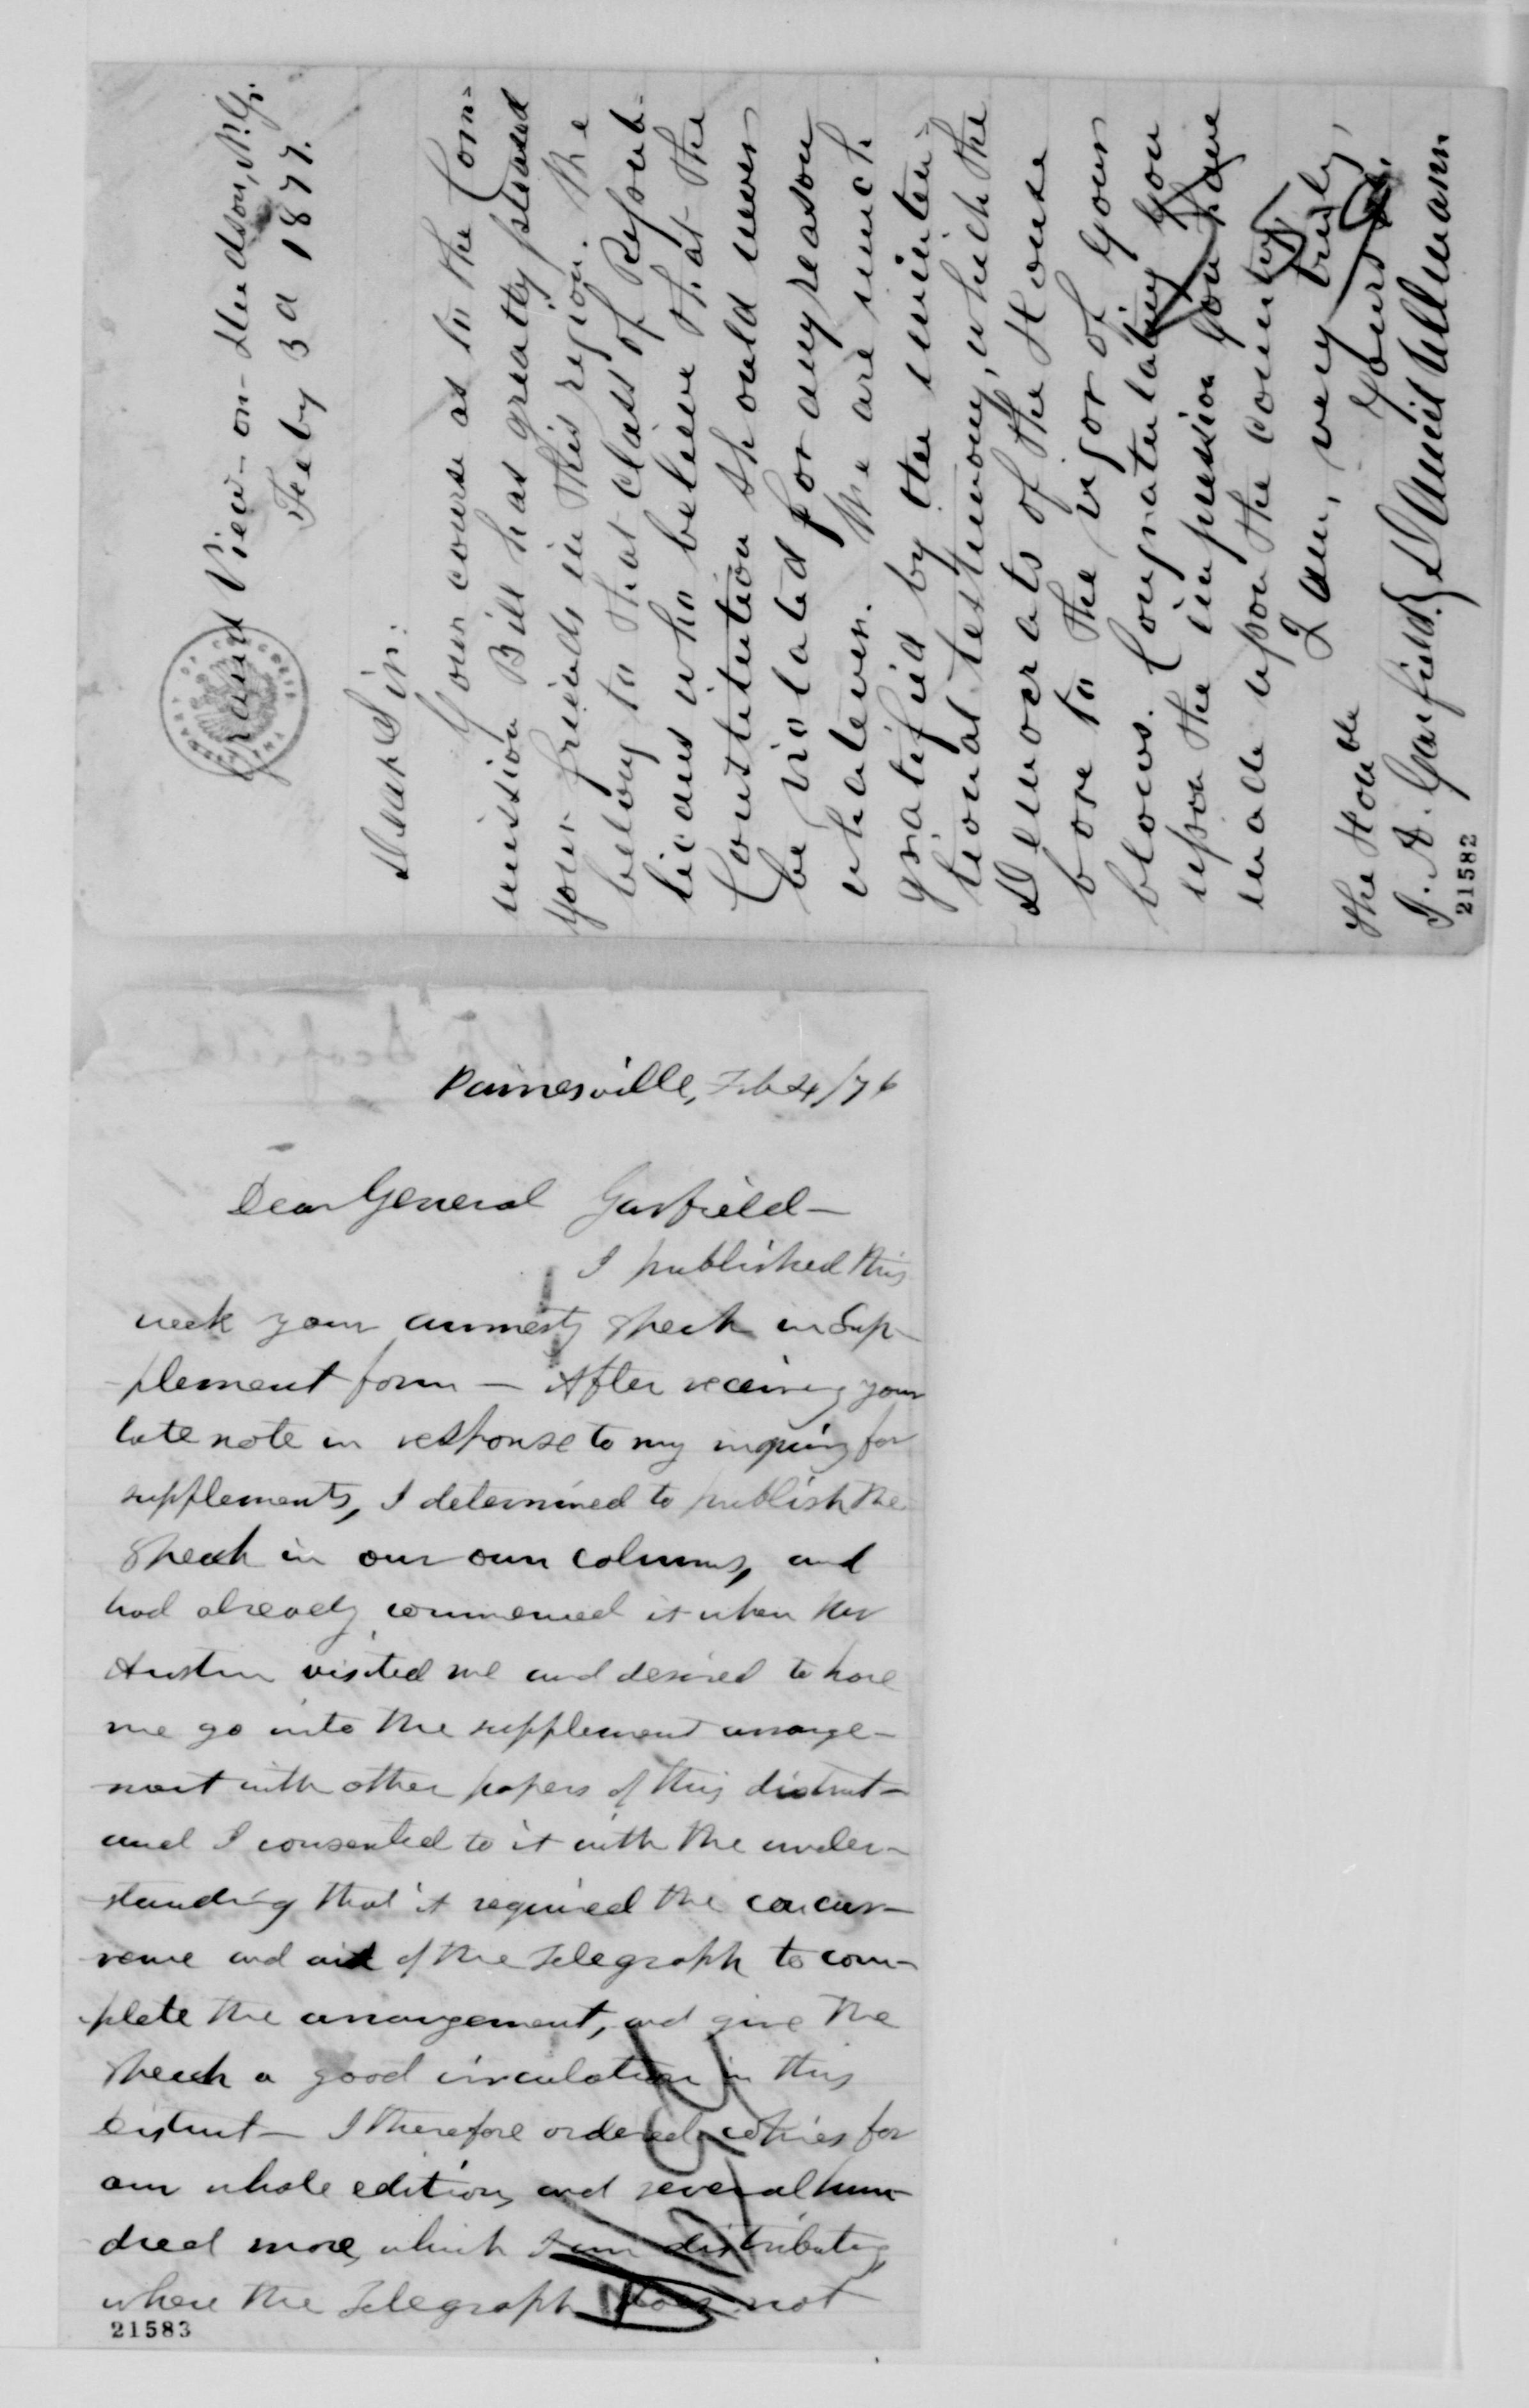 Grand View-on-Hudson, N.Y.
Feby 3d 1877.
Dear Sir:
Your course as to the Com-
mission Bill has greatly pleased
your friends in this region. We
belong to that class of Repub-
licans who believe that the
Constitution should never
be violated for any reason
whatever. We are much
gratified by the
tional testimony, which the
Democrats of the House
bore to the vigor of your
blows. Congratulating you
upon the impression you have
made upon the country,
I am, very truly,
Yours &c.
The Honble
J. A. Garfield. } Daniel Ullmann
21582
THE LIBRARY OF CONGRESS
Painesville, Feb 4/76
Dear General Garfield—
I published this
week your amnesty speech in Sup-
plement form — After receiving your
late note in response to my inquiry for
supplements, I determined to publish the
speech in our own columns, and
had already commenced it when Mr
Austin visited me and desired to have
me go into the supplement arrange-
ment with other papers of this district—
and I consented to it with the under-
standing that it required the concur-
rence and aid of the Telegraph to com-
plete the arrangement, and give the
speech a good circulation in this
District — I therefore ordered copies for
our whole edition, and several hun-
dred more, which I am distributing
where the Telegraph does not
21583